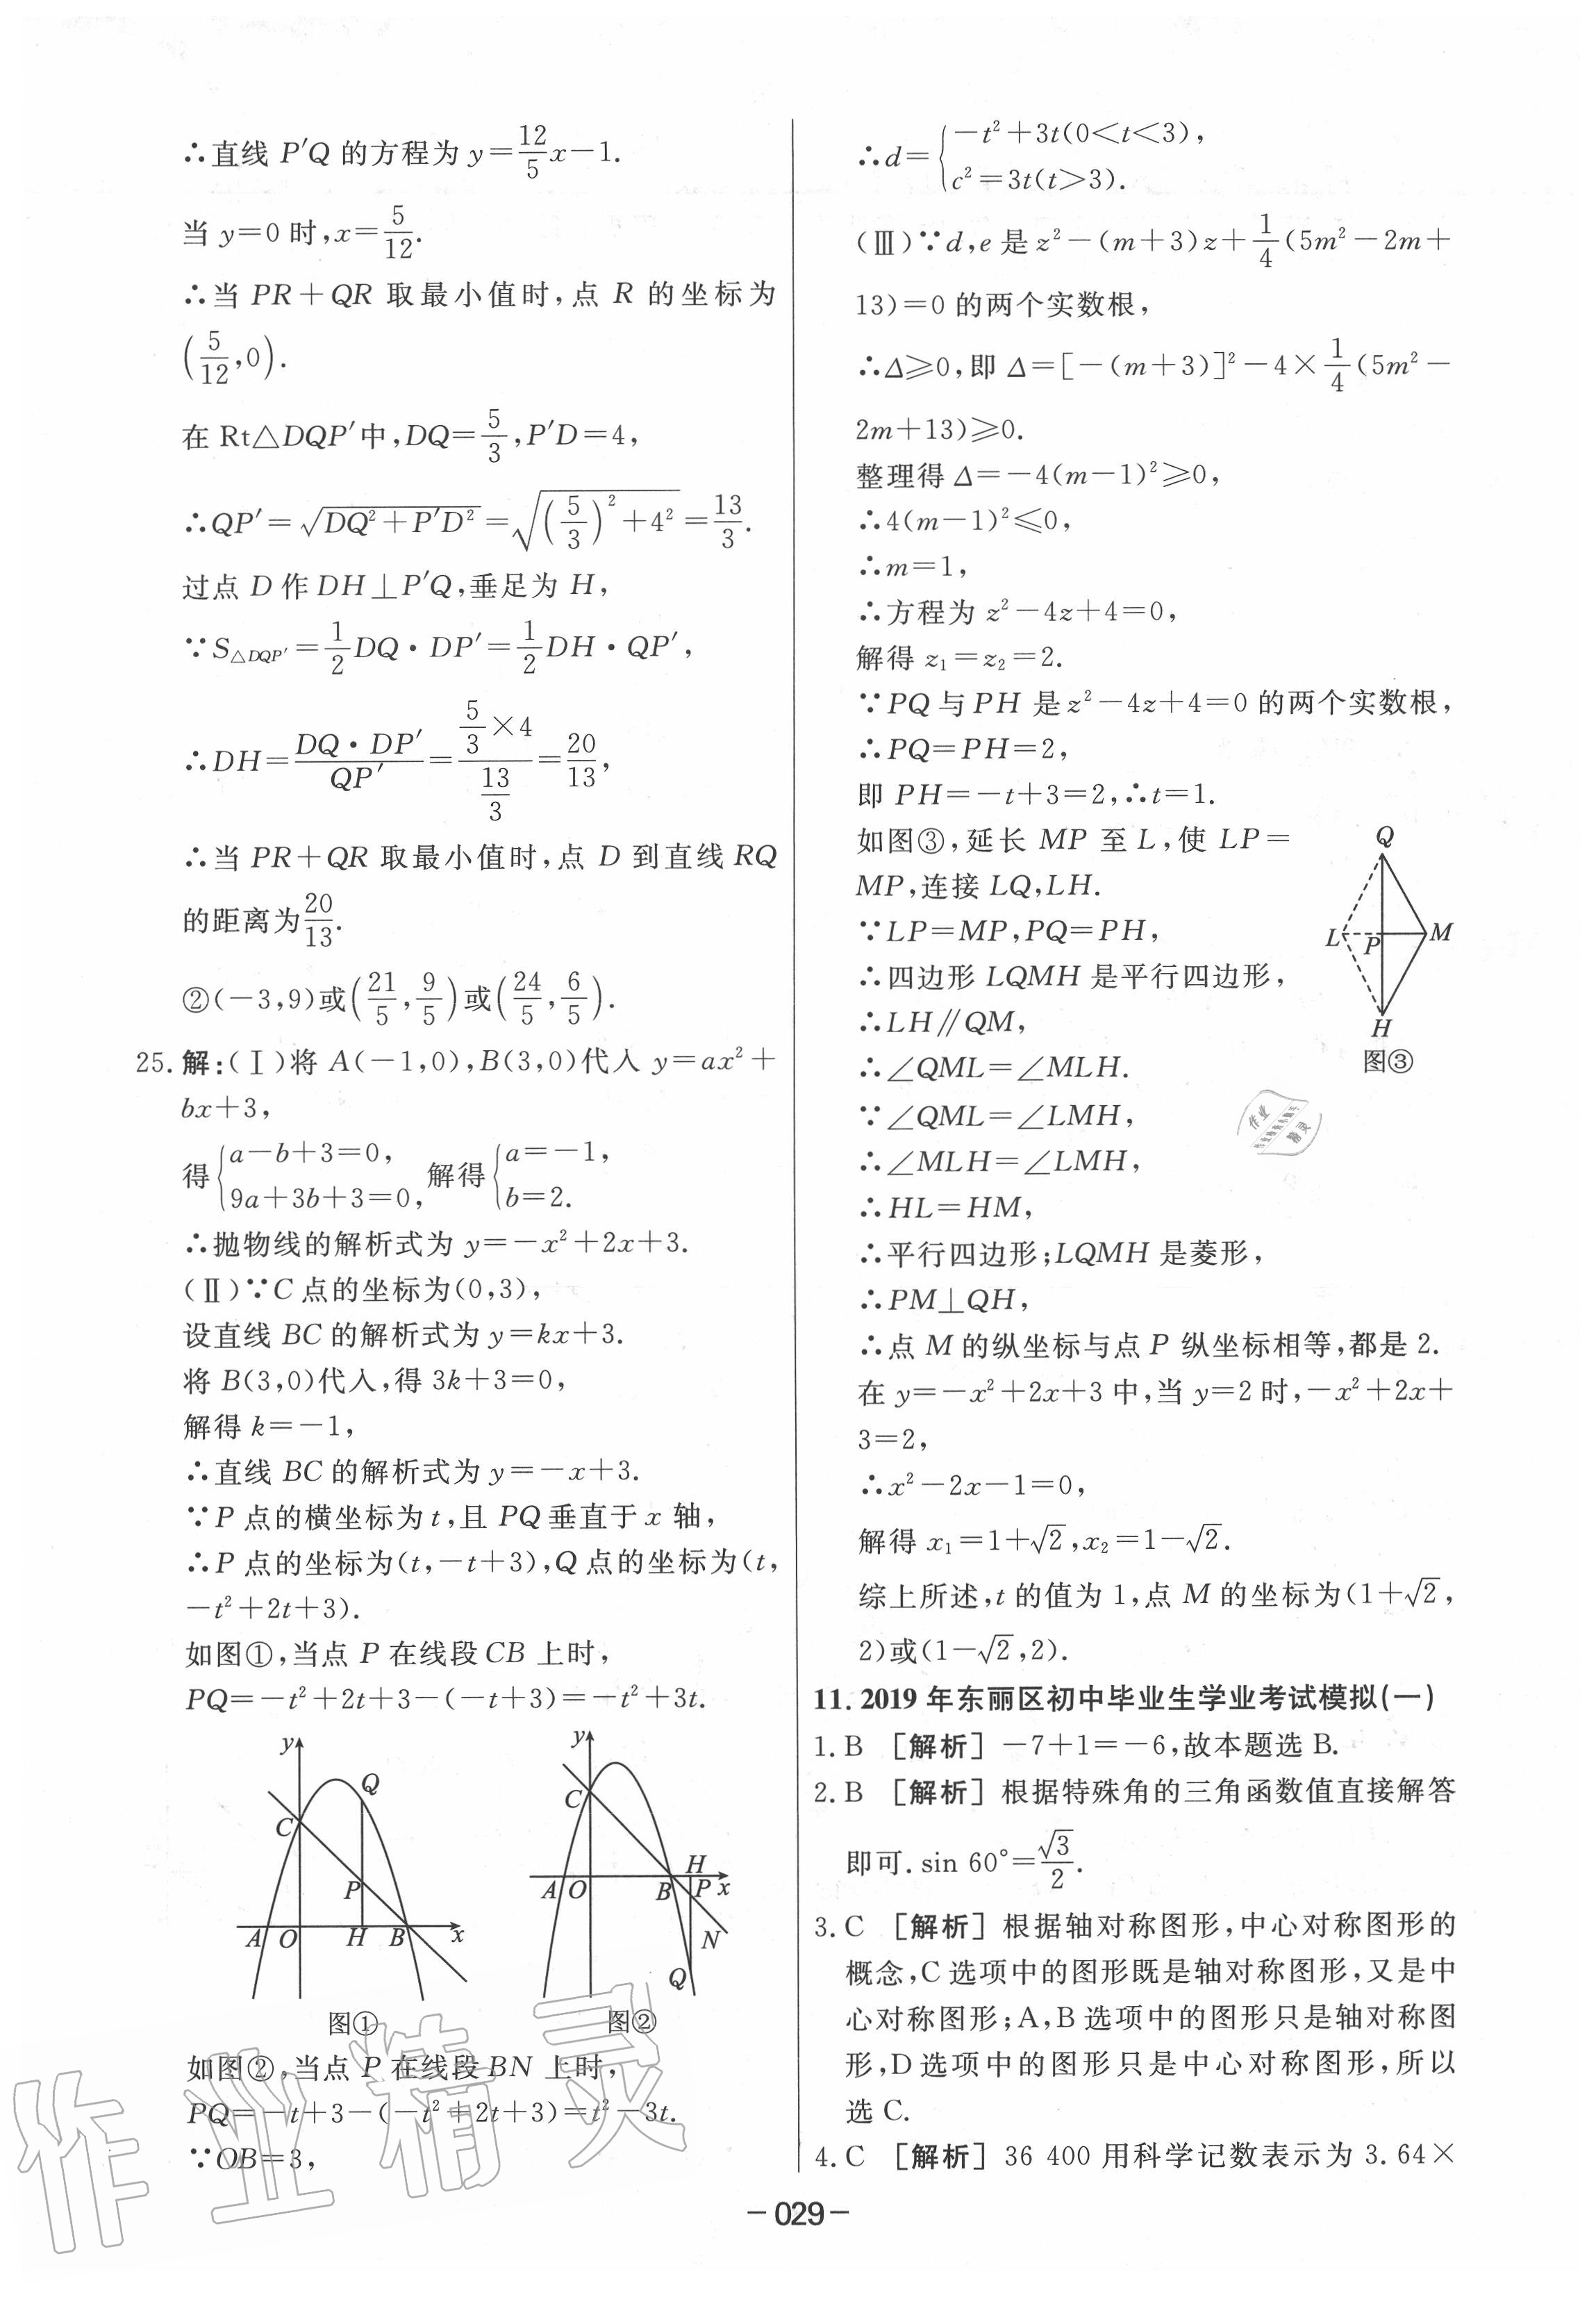 ∴直线 P′Q 的方程为 y=12/5x−1.
当 y=0 时,x=5/12.
∴当 PR+QR 取最小值时,点 R 的坐标为
(5/12,0).
在 Rt△DQP′中,DQ=5/3,P′D=4,
∴QP′=√(DQ²+P′D²)=√((5/3)²+4²)=13/3.
过点 D 作 DH⊥P′Q,垂足为 H,
∵S△DQP′=1/2DQ·DP′=1/2DH·QP′,
∴DH=(DQ·DP′)/QP′=(5/3×4)/(13/3)=20/13,
∴当 PR+QR 取最小值时,点 D 到直线 RQ
的距离为20/13.
②(−3,9)或(21/5,9/5)或(24/5,6/5).
25. 解:(Ⅰ)将 A(−1,0),B(3,0)代入 y=ax²+
bx+3,
得{a−b+3=0, 9a+3b+3=0, 解得{a=−1, b=2.
∴抛物线的解析式为 y=−x²+2x+3.
(Ⅱ)∵C 点的坐标为(0,3),
设直线 BC 的解析式为 y=kx+3.
将 B(3,0)代入,得 3k+3=0,
解得 k=−1,
∴直线 BC 的解析式为 y=−x+3.
∵P 点的横坐标为 t,且 PQ 垂直于 x 轴,
∴P 点的坐标为(t,−t+3),Q 点的坐标为(t,
−t²+2t+3).
如图①,当点 P 在线段 CB 上时,
PQ=−t²+2t+3−(−t+3)=−t²+3t.
y Q C P A O H B x
图①
y C H A O B P x N Q
图②
如图②,当点 P 在线段 BN 上时,
PQ=−t+3−(−t²+2t+3)=t²−3t.
∵OB=3,
∴d={−t²+3t(0<t<3), c²=3t(t>3).
(Ⅲ)∵d,e 是 z²−(m+3)z+1/4(5m²−2m+
13)=0 的两个实数根,
∴Δ≥0,即 Δ=[−(m+3)]²−4×1/4(5m²−
2m+13)≥0.
整理得 Δ=−4(m−1)²≥0,
∴4(m−1)²≤0,
∴m=1,
∴方程为 z²−4z+4=0,
解得 z₁=z₂=2.
∵PQ 与 PH 是 z²−4z+4=0 的两个实数根,
∴PQ=PH=2,
即 PH=−t+3=2,∴t=1.
如图③,延长 MP 至 L,使 LP=
MP,连接 LQ,LH.
∵LP=MP,PQ=PH,
∴四边形 LQMH 是平行四边形,
∴LH∥QM,
∴∠QML=∠MLH.
∵∠QML=∠LMH,
∴∠MLH=∠LMH,
∴HL=HM,
∴平行四边形;LQMH 是菱形,
∴PM⊥QH,
Q L P M H
图③
作业
精灵
∴点 M 的纵坐标与点 P 纵坐标相等,都是 2.
在 y=−x²+2x+3 中,当 y=2 时,−x²+2x+
3=2,
∴x²−2x−1=0,
解得 x₁=1+√2,x₂=1−√2.
综上所述,t 的值为 1,点 M 的坐标为(1+√2,
2)或(1−√2,2).
11. 2019 年东丽区初中毕业生学业考试模拟(一)
1. B [解析] −7+1=−6,故本题选 B.
2. B [解析] 根据特殊角的三角函数值直接解答
即可. sin 60°=√3/2.
3. C [解析] 根据轴对称图形,中心对称图形的
概念,C 选项中的图形既是轴对称图形,又是中
心对称图形;A,B 选项中的图形只是轴对称图
形,D 选项中的图形只是中心对称图形,所以
选 C.
4. C [解析] 36 400 用科学记数表示为 3.64×
作业精灵
－029－